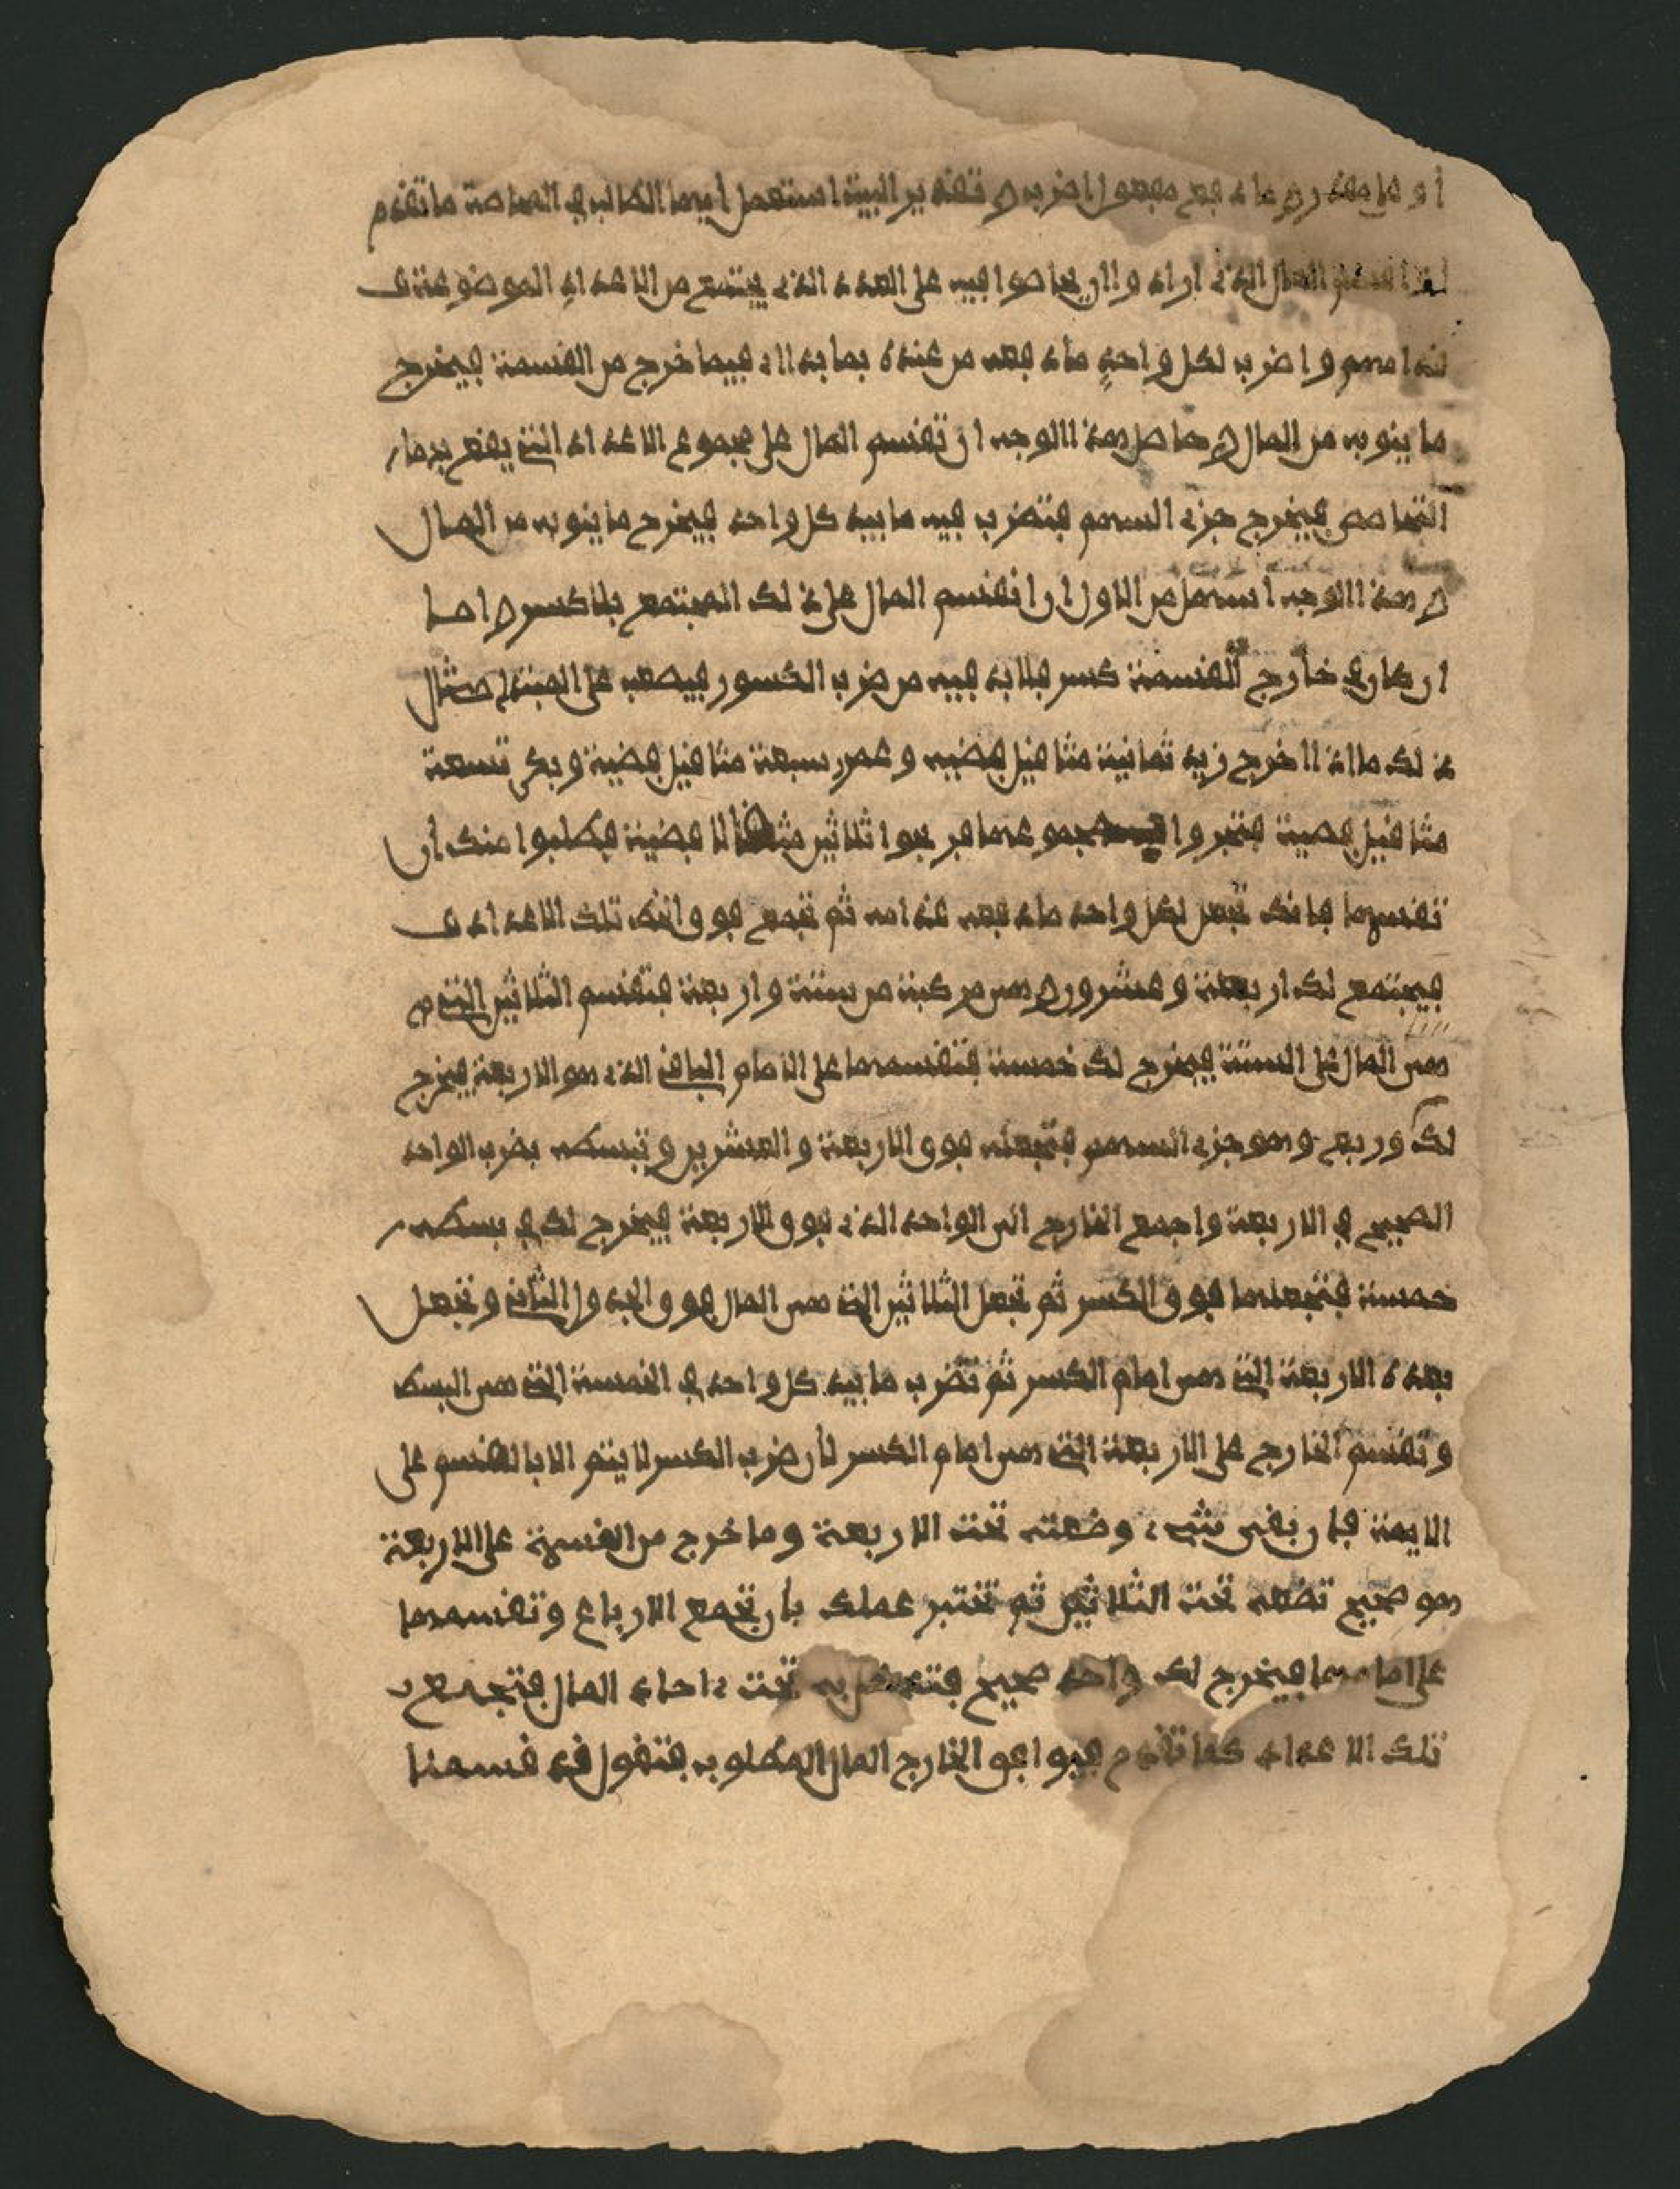 أو ها معه ما دفع مفعول اضرب تقدير البيت استعمل أيها الطالب في المحاصة ما تقدم
المال الذي اراد واان يتحاصوا فيه على العدد الذي يجتمع من الاعداد الموضوعة ف
قدامهم واضرب لكل واحد ما دفعه من عنده بما بدا لك فيما خرج من القسمة فيخرج
ما ينوبه من المال حاصل هذا الوجه ان تقسم المال على مجموع الاعداد التي يقع بها
التحاصص فيخرج جزء السهم فتضرب فيه ما بيد كل واحد فيخرج ما ينوبه من المال
وهذا الوجه اسهل من الاول ان انقسم المال على ذلك المجتمع بلا كسر واما
ان كان في خارج القسمة كسر فلا بد فيه من ضرب الكسور فيصعب على المبتدئ مثال
ذلك ما اذا اخرج زيد ثمانية مثاقيل فضية وعمر سبعة مثاقيل فضية وبكر تسعة
مثاقيل فضية فتجروا بمجموعها فربحوا ثلاثين مثقالا فضية فطلبوا منك أن
تقسمها فانك تجعل لكل واحد ما دفعه قدامه ثم تجمع فوقانك تلك الاعداد ف
فيجتمع لك اربعة وعشرون وهي مركبة من ستة واربعة فتقسم الثلاثين التي
هي المال على الستة فيخرج لك خمسة فتقسمها على الامام الباقي الذي هو الاربعة فيخرج
لك وربع وهو جزء السهم فتجعله فوق الاربعة والعشرين وتبسطه بضرب الواحد
الصحيح في الاربعة واجمع الخارج الى الواحد الذي فوق الاربعة فيخرج لك في بسطه
خمسة فتجعلها فوق الكسر ثم تجعل الثلاثين التي هي المال فوق الجدول الثاني وتجعل
بعده الاربعة التي هي امام الكسر ثم تضرب ما بيد كل واحد في الخمسة التي هي البسط
وتقسم الخارج على الاربعة التي هي امام الكسر لأن ضرب الكسر لا يتم الا بالقسم على
الايمة فان بقي شيء وضعته تحت الاربعة وما خرج من القسمة على الاربعة
هو صحيح تضعه تحت الثلاثين ثم تختبر عملك بأن تجمع الارباع وتقسمها
على امامها فيخرج لك واحد صحيح به تحت ءاحاد المال فتجمع
تلك الاعداد كما تقدم فيوافق الخارج المال المطلوب فتقول قد قسمنا